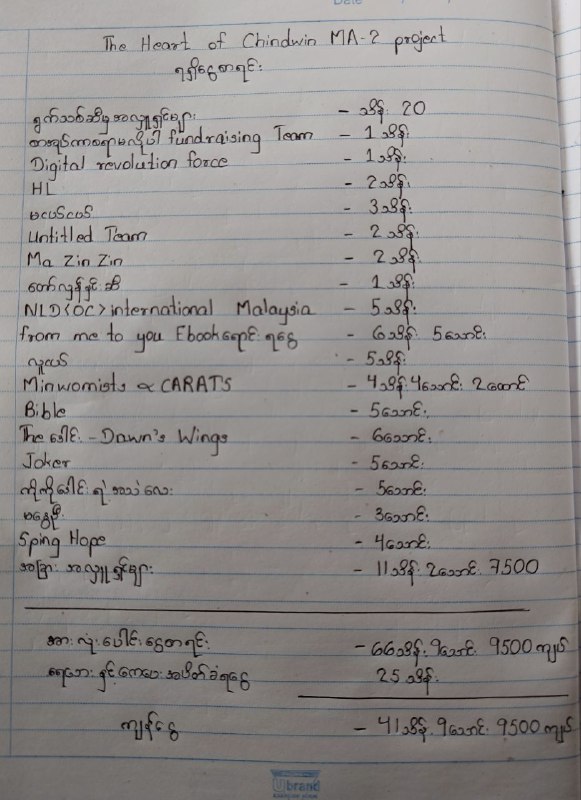 Date
The Heart of Chindwin MA-2 project
ရရှိငွေစာရင်း
ရွက်သစ်ဆီမှ အလှူရှင်များ - သိန်း 20
fundraising Team - 1 သိန်း
Digital revolution force - 1 သိန်း
HL - 2 သိန်း
မငယ်ငယ် - 3 သိန်း
Untitled Team - 2 သိန်း
Ma Zin Zin - 2 သိန်း
တော်လှန်နှင်းဆီ - 1 သိန်း
NLD(OC) international Malaysia - 5 သိန်း
from me to you Ebook ရောင်းရငွေ - 6 သိန်း 5 သောင်း
လူငယ် - 5 သိန်း
Minwomists & CARATS - 4 သိန်း 4 သောင်း 2 ထောင်
Bible - 5 သောင်း
The ခေါင်း - Dawn's Wings - 6 သောင်း
Joker - 5 သောင်း
ကိုကိုခေါင်းရဲ့ အသဲလေး - 5 သောင်း
မနွေဦး - 3 သောင်း
Sping Hope - 4 သောင်း
အခြား အလှူရှင်များ - 11 သိန်း 2 သောင်း 7500
အားလုံးပေါင်းငွေစာရင်း - 66 သိန်း 9 သောင်း 9500 ကျပ်
25 သိန်း
ကျန်ငွေ - 41 သိန်း 9 သောင်း 9500 ကျပ်
Ubrand